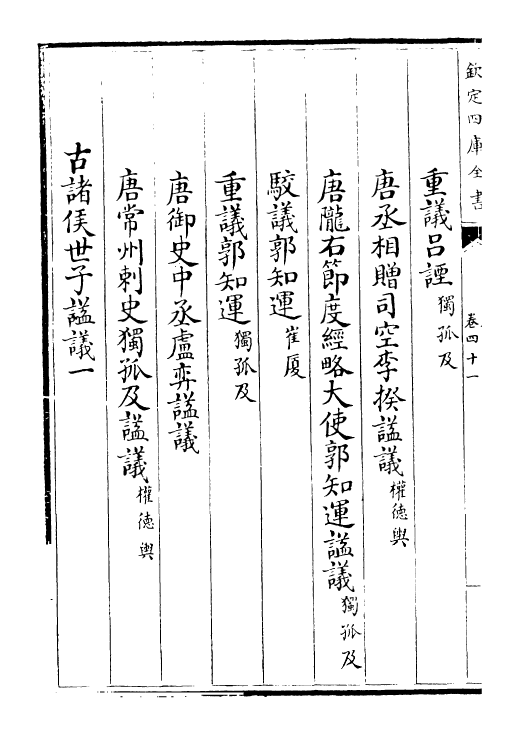 欽定四庫全書
卷四十一
重議呂諲 獨孤及
唐丞相贈司空李揆謚議 權德輿
唐隴右節度經略大使郭知運謚議 獨孤及
駮議郭知運 崔厦
重議郭知運 獨孤及
唐御史中丞盧弈謚議
唐常州刺史獨孤及謚議 權德輿
古諸侯世子謚議一